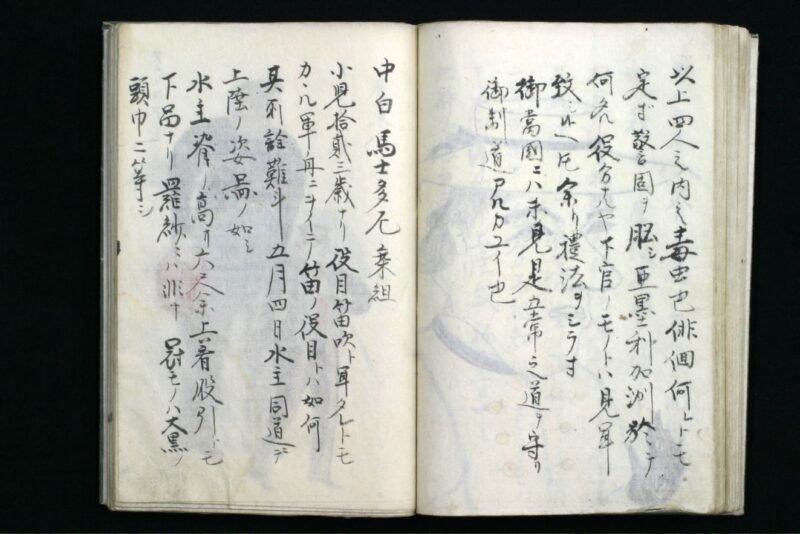 以上四人之内ミ毒虫也俳個何レトモ
定ズ警固ヲ脳シ亜墨利加洲於ヰテ
何々役分ナルヤ下官ノモノトハ見
致 余リ禮法ヲシラす
御當國ニハ未見是五常之道ヲ守リ
御制道アルカユイ也
中白 馬士多尼乗組
小児拾貳三歳ナリ役目笛吹ト タレトモ
カヽル軍舟ニヲイニノ笛ノ役目トハ如何
其所詮難斗 五月四日水主同道ニテ
上陸ノ姿畧ノ如シ
水主 高サ六尺余上着股引トモ
下品ナリ羅紗ニハ非ず 冠モノハ大黒ノ
頭巾ニ等シ